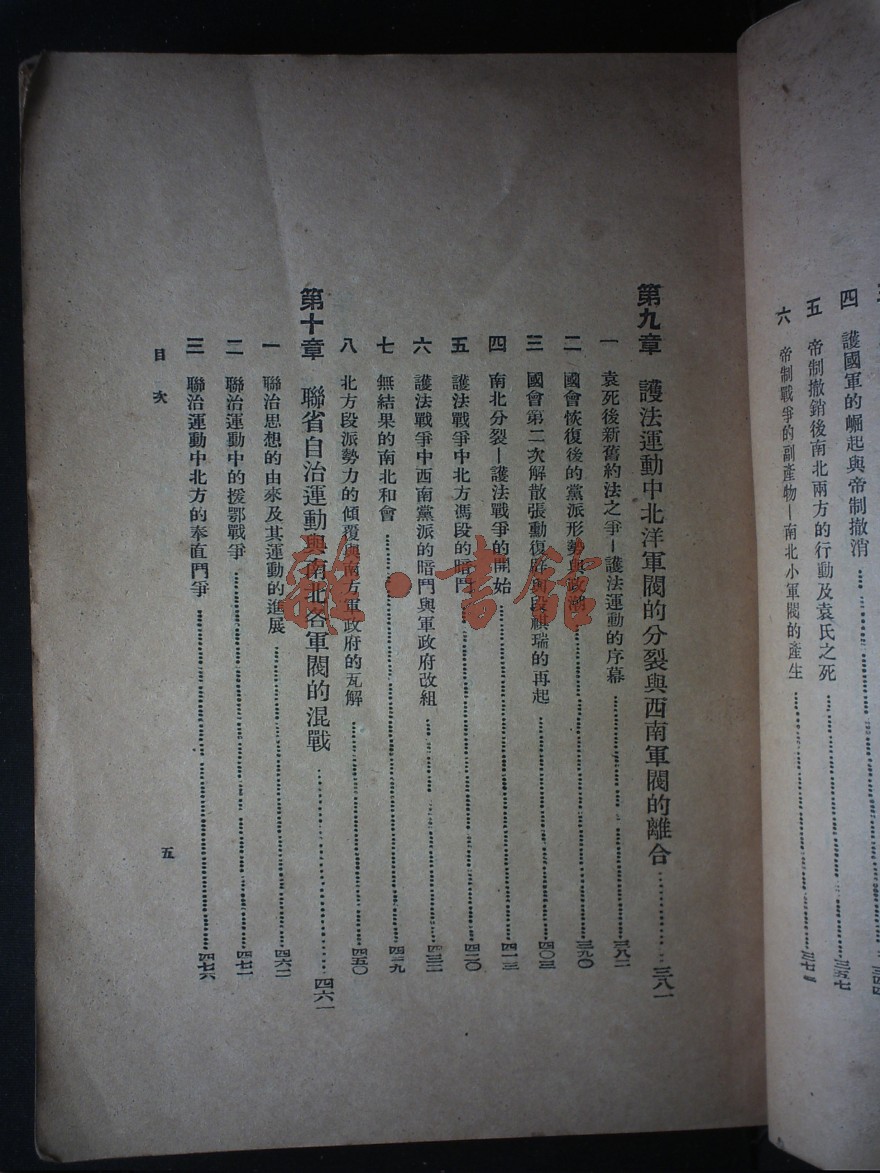 四 護國軍的崛起與帝制撤消
五 帝制撤銷後南北兩方的行動及袁氏之死 三五七
六 帝制戰爭的副產物—南北小軍閥的產生
第九章 護法運動中北洋軍閥的分裂與西南軍閥的離合 三八一
一 袁死後新舊約法之爭—護法運動的序幕 三八二
二 國會恢復後的黨派形勢與政潮 三九〇
三 國會第二次解散張勳復辟與段祺瑞的再起 四〇三
四 南北分裂—護法戰爭的開始 四一三
五 護法戰爭中北方馮段的暗鬥 四二〇
六 護法戰爭中西南黨派的暗鬥與軍政府改組 四三二
七 無結果的南北和會 四三九
八 北方段派勢力的傾覆與南方軍政府的瓦解 四五〇
第十章 聯省自治運動與南北各軍閥的混戰 四六一
一 聯治思想的由來及其運動的進展 四六二
二 聯治運動中的援鄂戰爭 四七一
三 聯治運動中北方的奉直鬥爭 四七六
目次 五
雜·書館